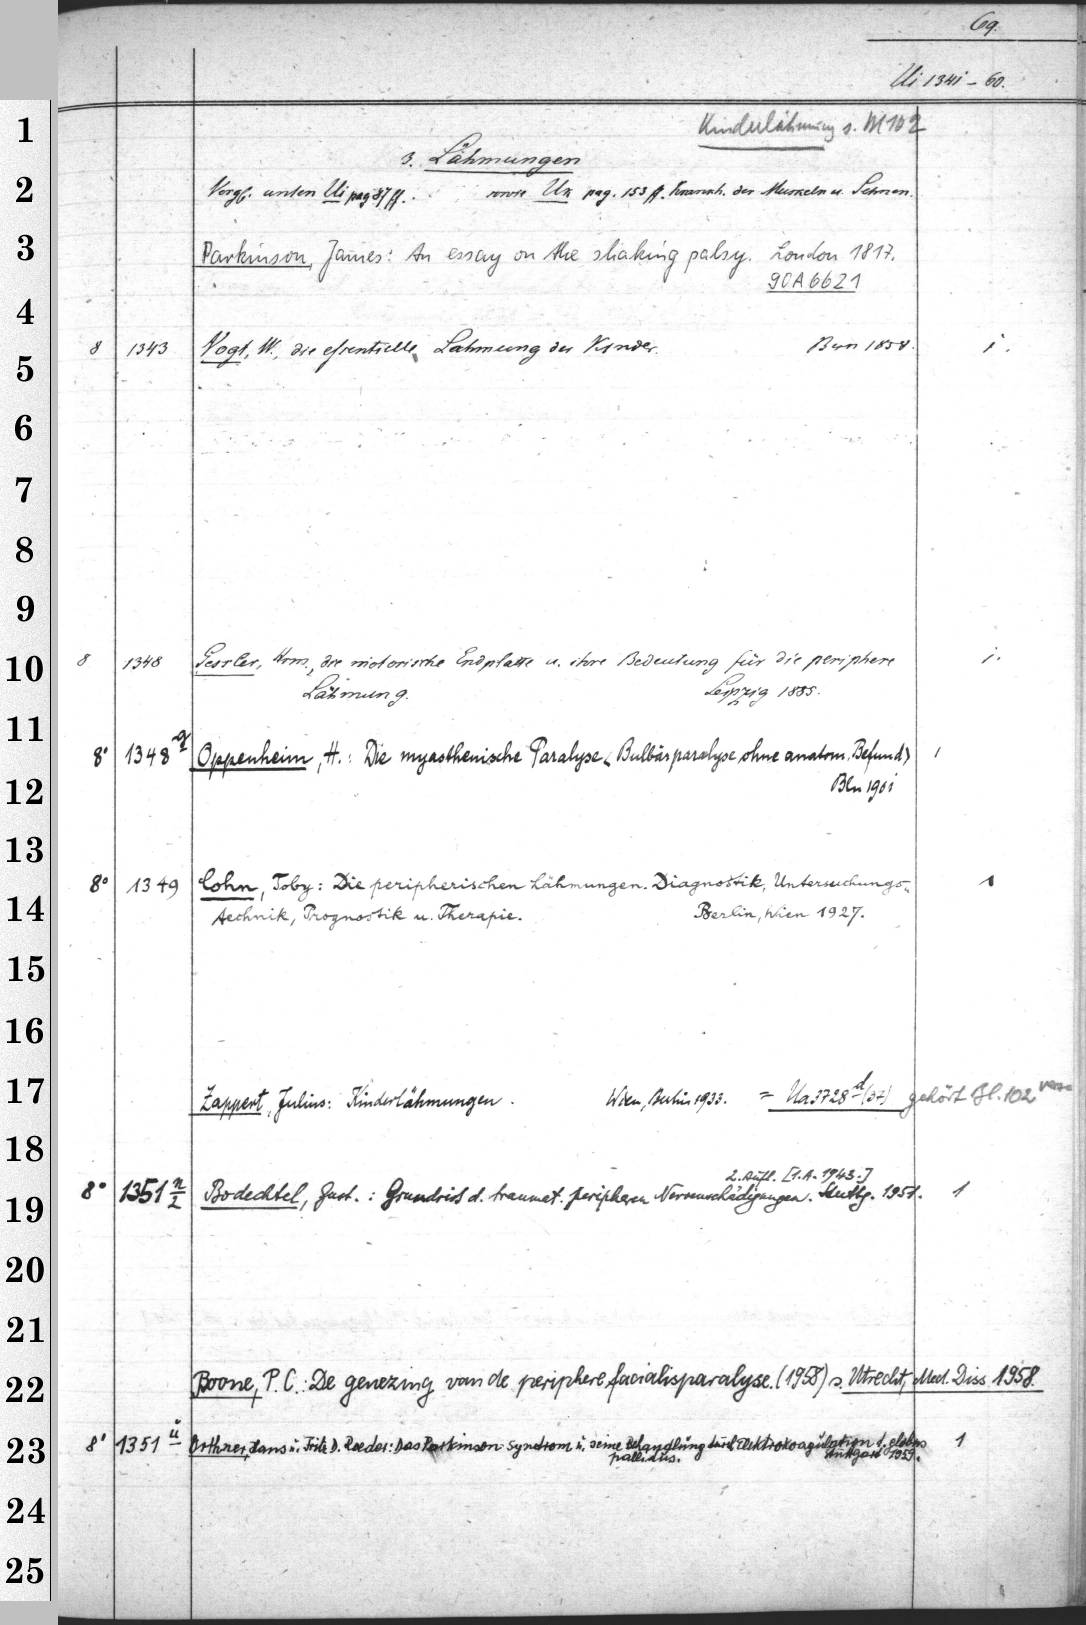 69.
Ui 1341-60.
Kinderlähmung s. M 102
3. Lähmungen
Vergl. unten Ui pag 87 ff. sowie Uk pag. 153 ff. Krankh. der Muskeln u. Sehnen.
Parkinson, James: An essay on the shaking palsy. London 1817.
90A6621
8 1343 Vogt, W., die essentielle Lähmung der Kinder. Bern 1858. 1.
8 1348 Gessler, Hrm., die motorische Endplatte u. ihre Bedeutung für die periphere 1.
Lähmung. Leipzig 1885.
8° 1348 g Oppenheim, H.: Die myasthenische Paralyse (Bulbärparalyse ohne anatom. Befund) 1
Bln 1901
8° 1349 Cohn, Toby: Die peripherischen Lähmungen. Diagnostik, Untersuchungs- 1
technik, Prognostik u. Therapie. Berlin, Wien 1927.
Zappert, Julius: Kinderlähmungen. Wien, Berlin 1933. = Ua 3728 d (37) gehört Bl. 102
2. Aufl. [1.A. 1943.]
8° 1351 n/2 Bodechtel, Gust.: Grundriss d. traumat. peripheren Nervenschädigungen. Stuttg. 1951. 1
Boone, P. C.: De genezing van de periphere facialisparalyse. (1958) s. Utrecht, Med. Diss 1958.
8° 1351 ü Orthner, Hans u. Fritz D. Roeder: Das Parkinson-Syndrom u. seine Behandlung durch Elektrokoagulation d. globus 1
pallidus. Stuttgart 1959.
1
2
3
4
5
6
7
8
9
10
11
12
13
14
15
16
17
18
19
20
21
22
23
24
25